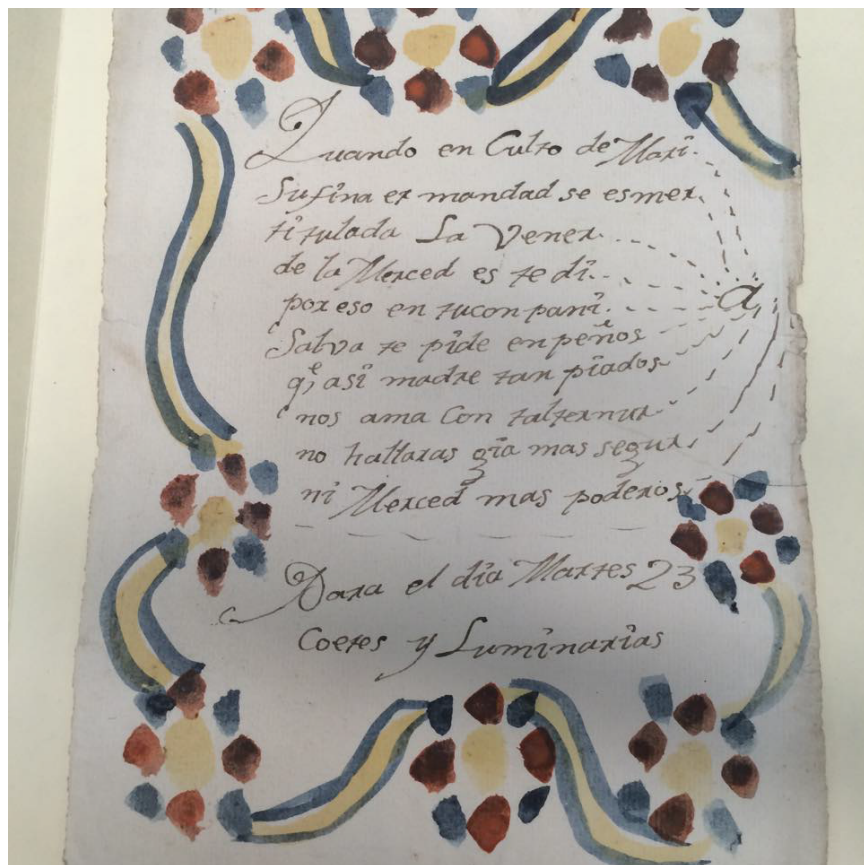 Quando en Culto de Mari
Su fina ermandad se esmer
titulada La Vener
de la Merced es te di
por eso en tu conpani
Salva te pide en peños
q,e asi madre tan piados
nos ama Con tal ternur
no hallaras gia mas segur
ni Merced mas poderos
a
Dara el dia Martes 23
Coetes y Luminarias